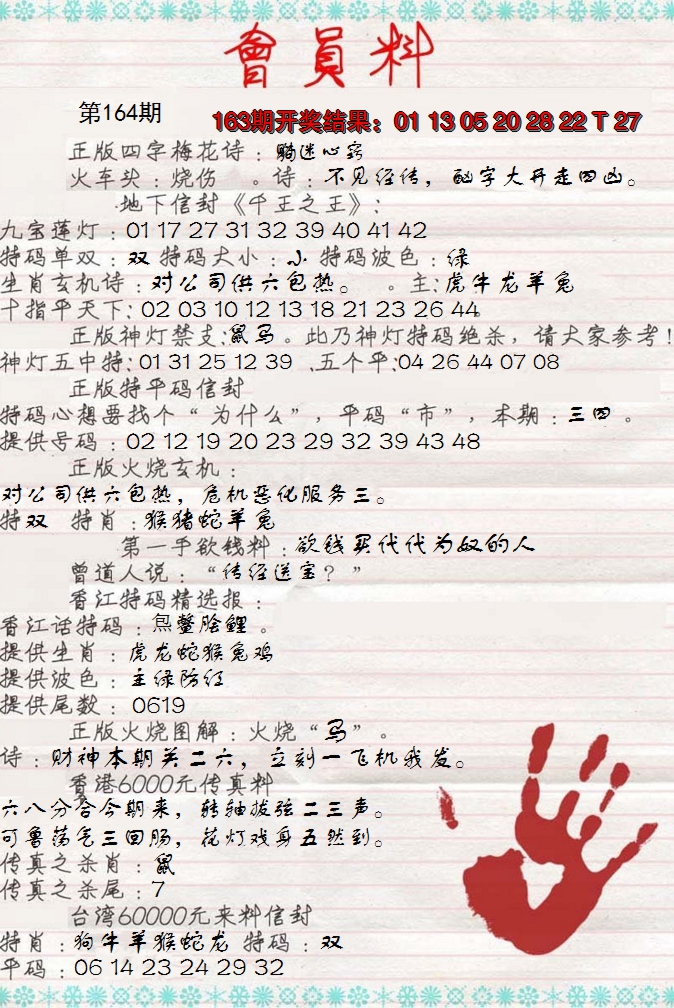 會員料
第164期
163期开奖结果：01 13 05 20 28 22 T 27
正版四字梅花诗：睛迷心窍
火车头：烧伤 。诗：不见经传，酗字大开走四凶。
地下信封《千王之王》：
九宝莲灯：01 17 27 31 32 39 40 41 42
特码单双：双 特码大小：小 特码波色：绿
生肖玄机诗：对公司供六包热。 。主：虎牛龙羊兔
十指平天下：02 03 10 12 13 18 21 23 26 44
正版神灯禁支：鼠马。此乃神灯特码绝杀，请大家参考！
神灯五中特：01 31 25 12 39 、五个平：04 26 44 07 08
正版特平码信封
特码心想要找个“为什么”，平码“市”，本期：三四。
提供号码：02 12 19 20 23 29 32 39 43 48
正版火烧玄机：
对公司供六包热，危机恶化服务三。
特双 特肖：猴猪蛇羊兔
第一手欲钱料：欲钱买代代为奴的人
曾道人说：“传经送宝？”
香江特码精选报：
香江话特码：炰鳖脍鲤。
提供生肖：虎龙蛇猴兔鸡
提供波色：主绿防红
提供尾数：0619
正版火烧图解：火烧“马”。
诗：财神本期关二六，立刻一飞机我发。
香港6000元传真料
六八分合今期来，转轴拔弦二三声。
可鲁荡气三回肠，花灯戏身五然到。
传真之杀肖：鼠
传真之杀尾：7
台湾60000元来料信封
特肖：狗牛羊猴蛇龙 特码：双
平码：06 14 23 24 29 32